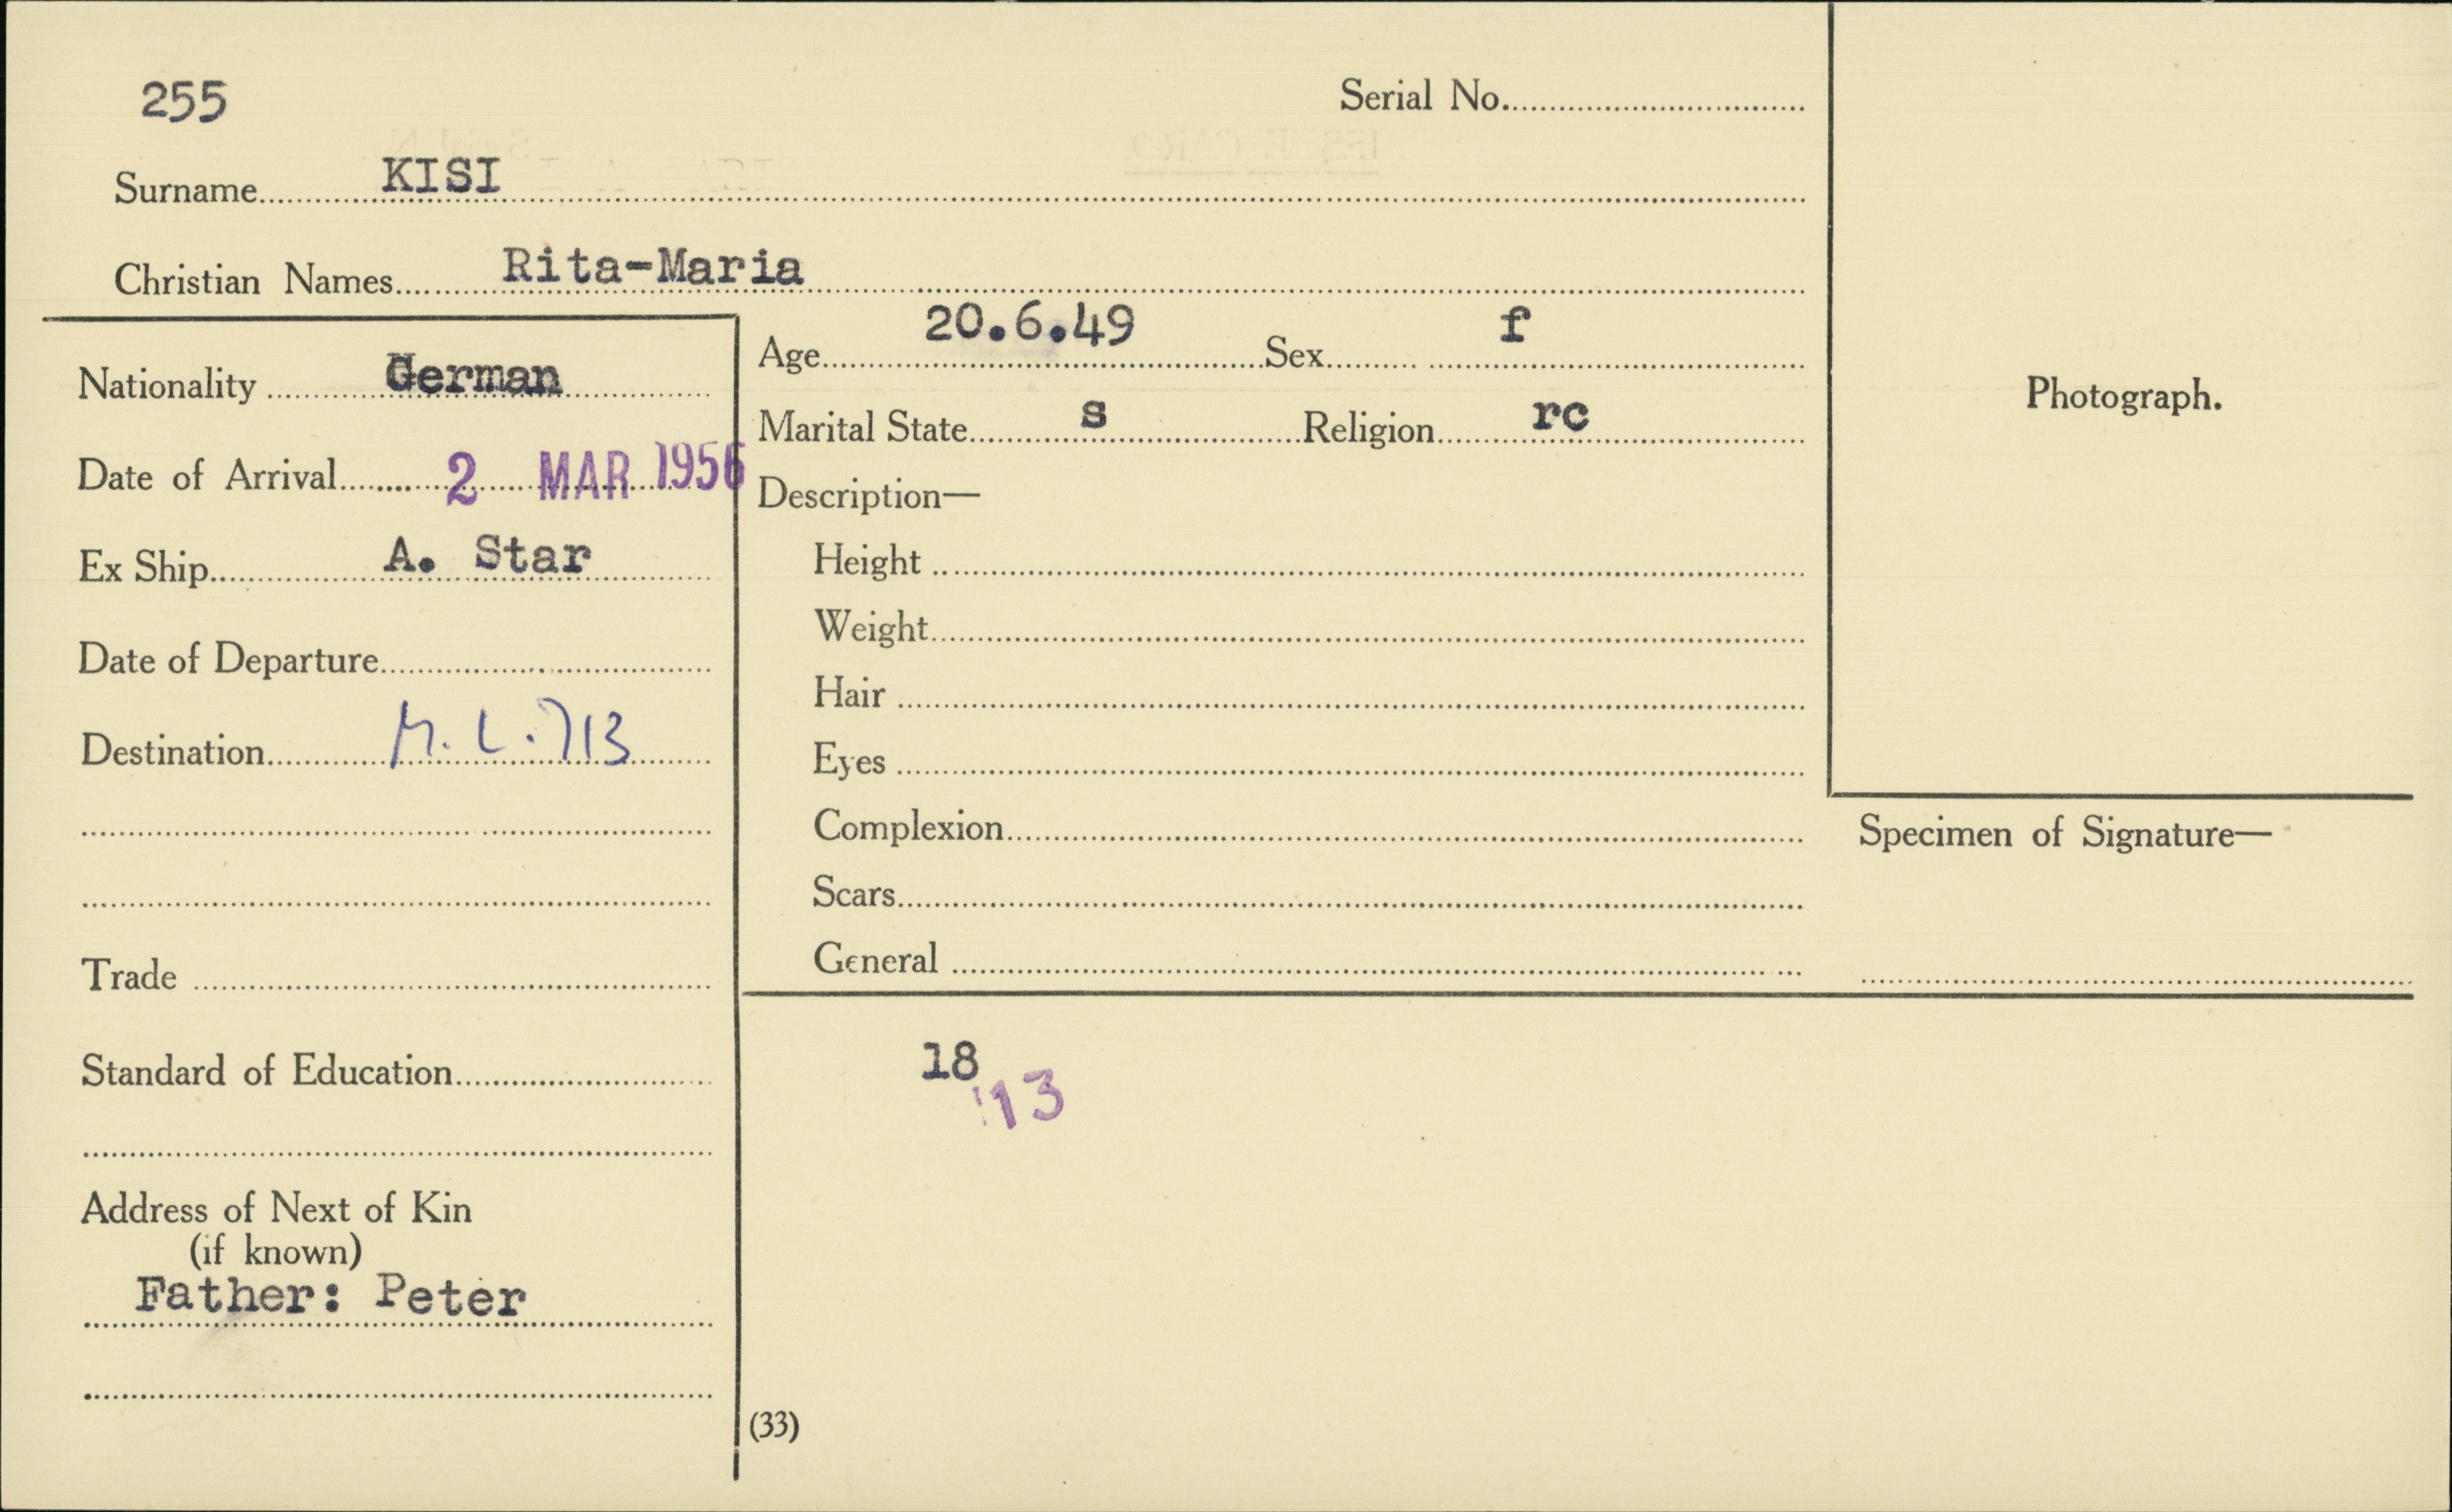 255
Serial No.
Surname KISI
Christian Names Rita-Maria
Nationality German
Date of Arrival 2 MAR 1956
Ex Ship A. Star
Date of Departure
Destination M. L. 713
Trade
Standard of Education
Address of Next of Kin
(if known)
Father: Peter
Age 20.6.49 Sex f
Marital State s Religion rc
Description—
Height
Weight
Hair
Eyes
Complexion
Scars
General
18
13
(33)
Photograph.
Specimen of Signature—